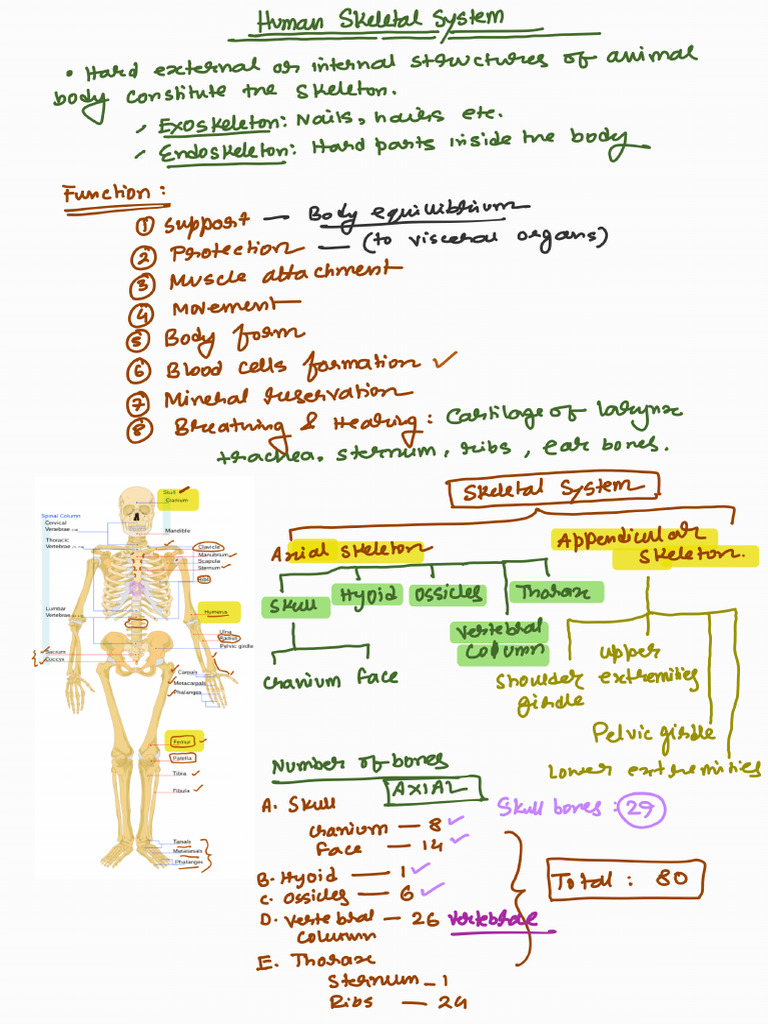 Human Skeletal System
• Hard external or internal structures of animal
body constitute the skeleton.
✓ Exoskeleton: Nails, hairs etc.
✓ Endoskeleton: Hard parts inside the body
Function:
① Support — Body equilibrium
② Protection — (to visceral organs)
③ Muscle attachment
④ Movement
⑤ Body form
⑥ Blood cells formation ✓
⑦ Mineral reservation
⑧ Breathing & Hearing: Cartilage of larynx
trachea, sternum, ribs, ear bones.
Skull
Cranium
Spinal Column
Cervical
Vertebrae
Thoracic
Vertebrae
Lumbar
Vertebrae
Sacrum
Coccyx
Mandible
Clavicle
Manubrium
Scapula
Sternum
Ribs
Humerus
Ulna
Radius
Pelvic girdle
Carpals
Metacarpals
Phalanges
Femur
Patella
Tibia
Fibula
Tarsals
Metatarsals
Phalanges
Skeletal System
Axial Skeleton
Appendicular
Skeleton.
Skull
Hyoid
Ossicles
Thorax
Vertebral
Column
Cranium
Face
Shoulder
girdle
upper
extremities
Pelvic girdle
Lower extremities
Number of bones
AXIAL
A. Skull
Cranium — 8 ✓
Face — 14 ✓
B. Hyoid — 1 ✓
C. Ossicles — 6 ✓
D. Vertebral — 26 Vertebrae
Column
E. Thorax
Sternum - 1
Ribs — 24
Skull bones: 29
Total: 80